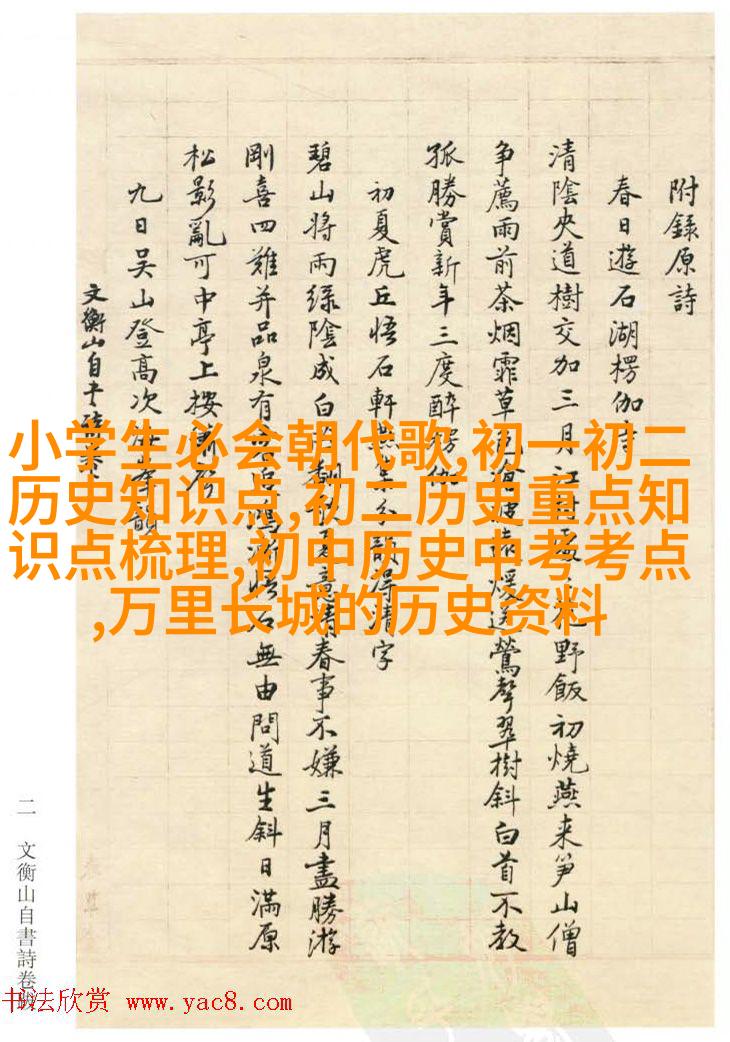 附錄原詩
春日遊石湖楞伽
清陰央道樹交加三月江野飯初燒燕来笋山僧
争薦雨前茶烟霏草色煖送鶯聲翠樹斜白首不教
孤勝賞新年三度醉楞伽
初夏虎丘悟石軒燕集分韻得清字
碧山將雨緑陰成白春事不嫌三月盡勝游
剛喜四難并品泉有悟石無由問道生斜日滿原
松影亂可中亭上按
九日吴山登高次韻
文衡山自
二 文衡山自書詩卷
小学生必会朝代歌,初一初二
历史知识点,初二历史重点知
识点梳理,初中历史中考考点
,万里长城的历史资料
书法欣赏 www.yac8.com